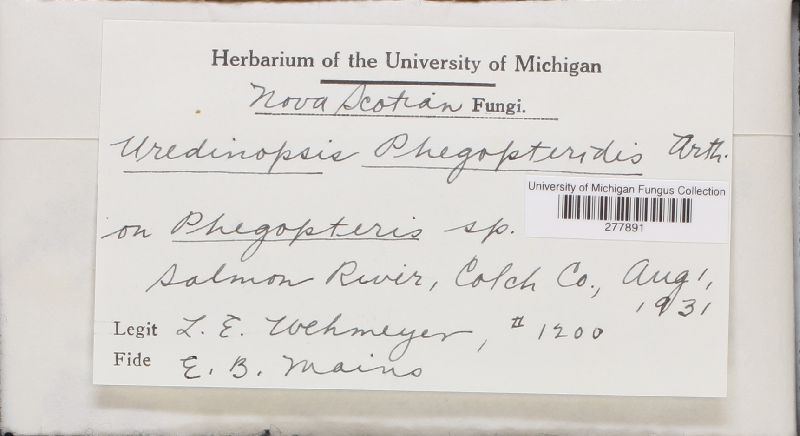 Herbarium of the University of Michigan
Nova Scotian Fungi.
Uredinopsis Phegopteridis Arth.
University of Michigan Fungus Collection
277891
on Phegopteris sp.
Salmon River, Colch Co., Aug 1,
1931
Legit L. E. Wehmeyer, # 1200
Fide E. B. Mains